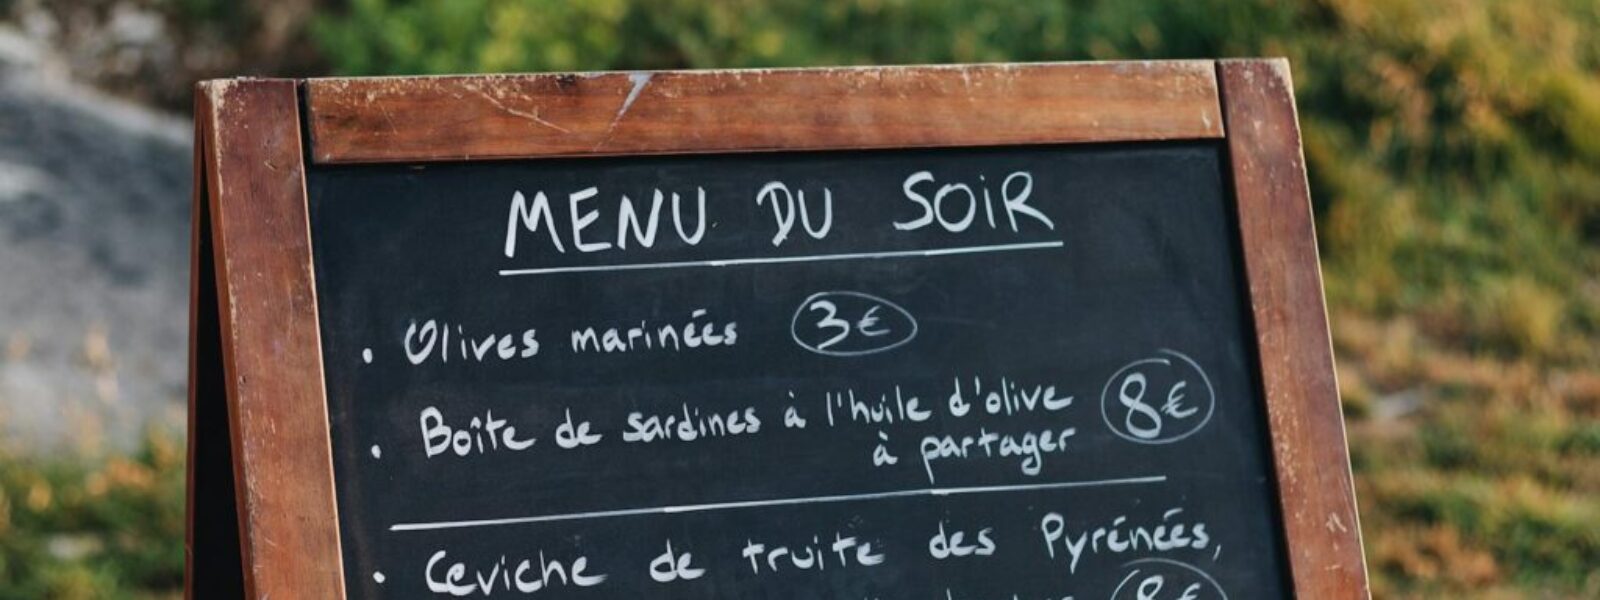 MENU DU SOIR
• Olives marinées 3€
• Boîte de sardines à l'huile d'olive
à partager 8€
• Ceviche de truite des Pyrénées,
8€